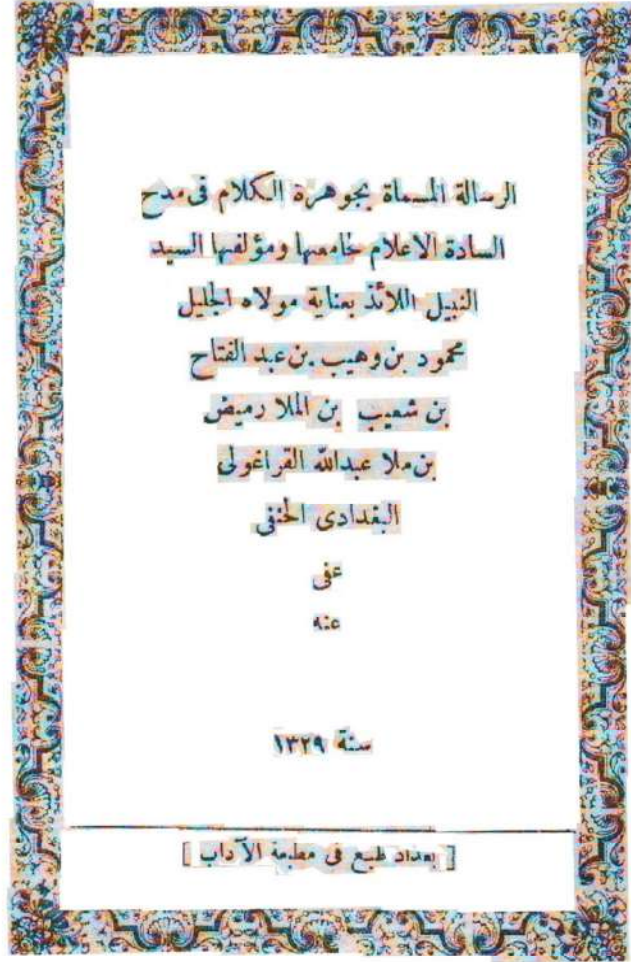 الرسالة المسماة بجوهرة الكلام فى مدح
السادة الاعلام لجامعها ومؤلفها السيد
النبيل اللائذ بعناية مولاه الجليل
محمود بن وهيب بن عبد الفتاح
بن شعيب بن الملا رميض
بن ملا عبدالله القراغولى
البغدادى الحنفى
عفى
عنه
سنة ١٣٢٩
[ بغداد طبع فى مطبعة الآداب ]